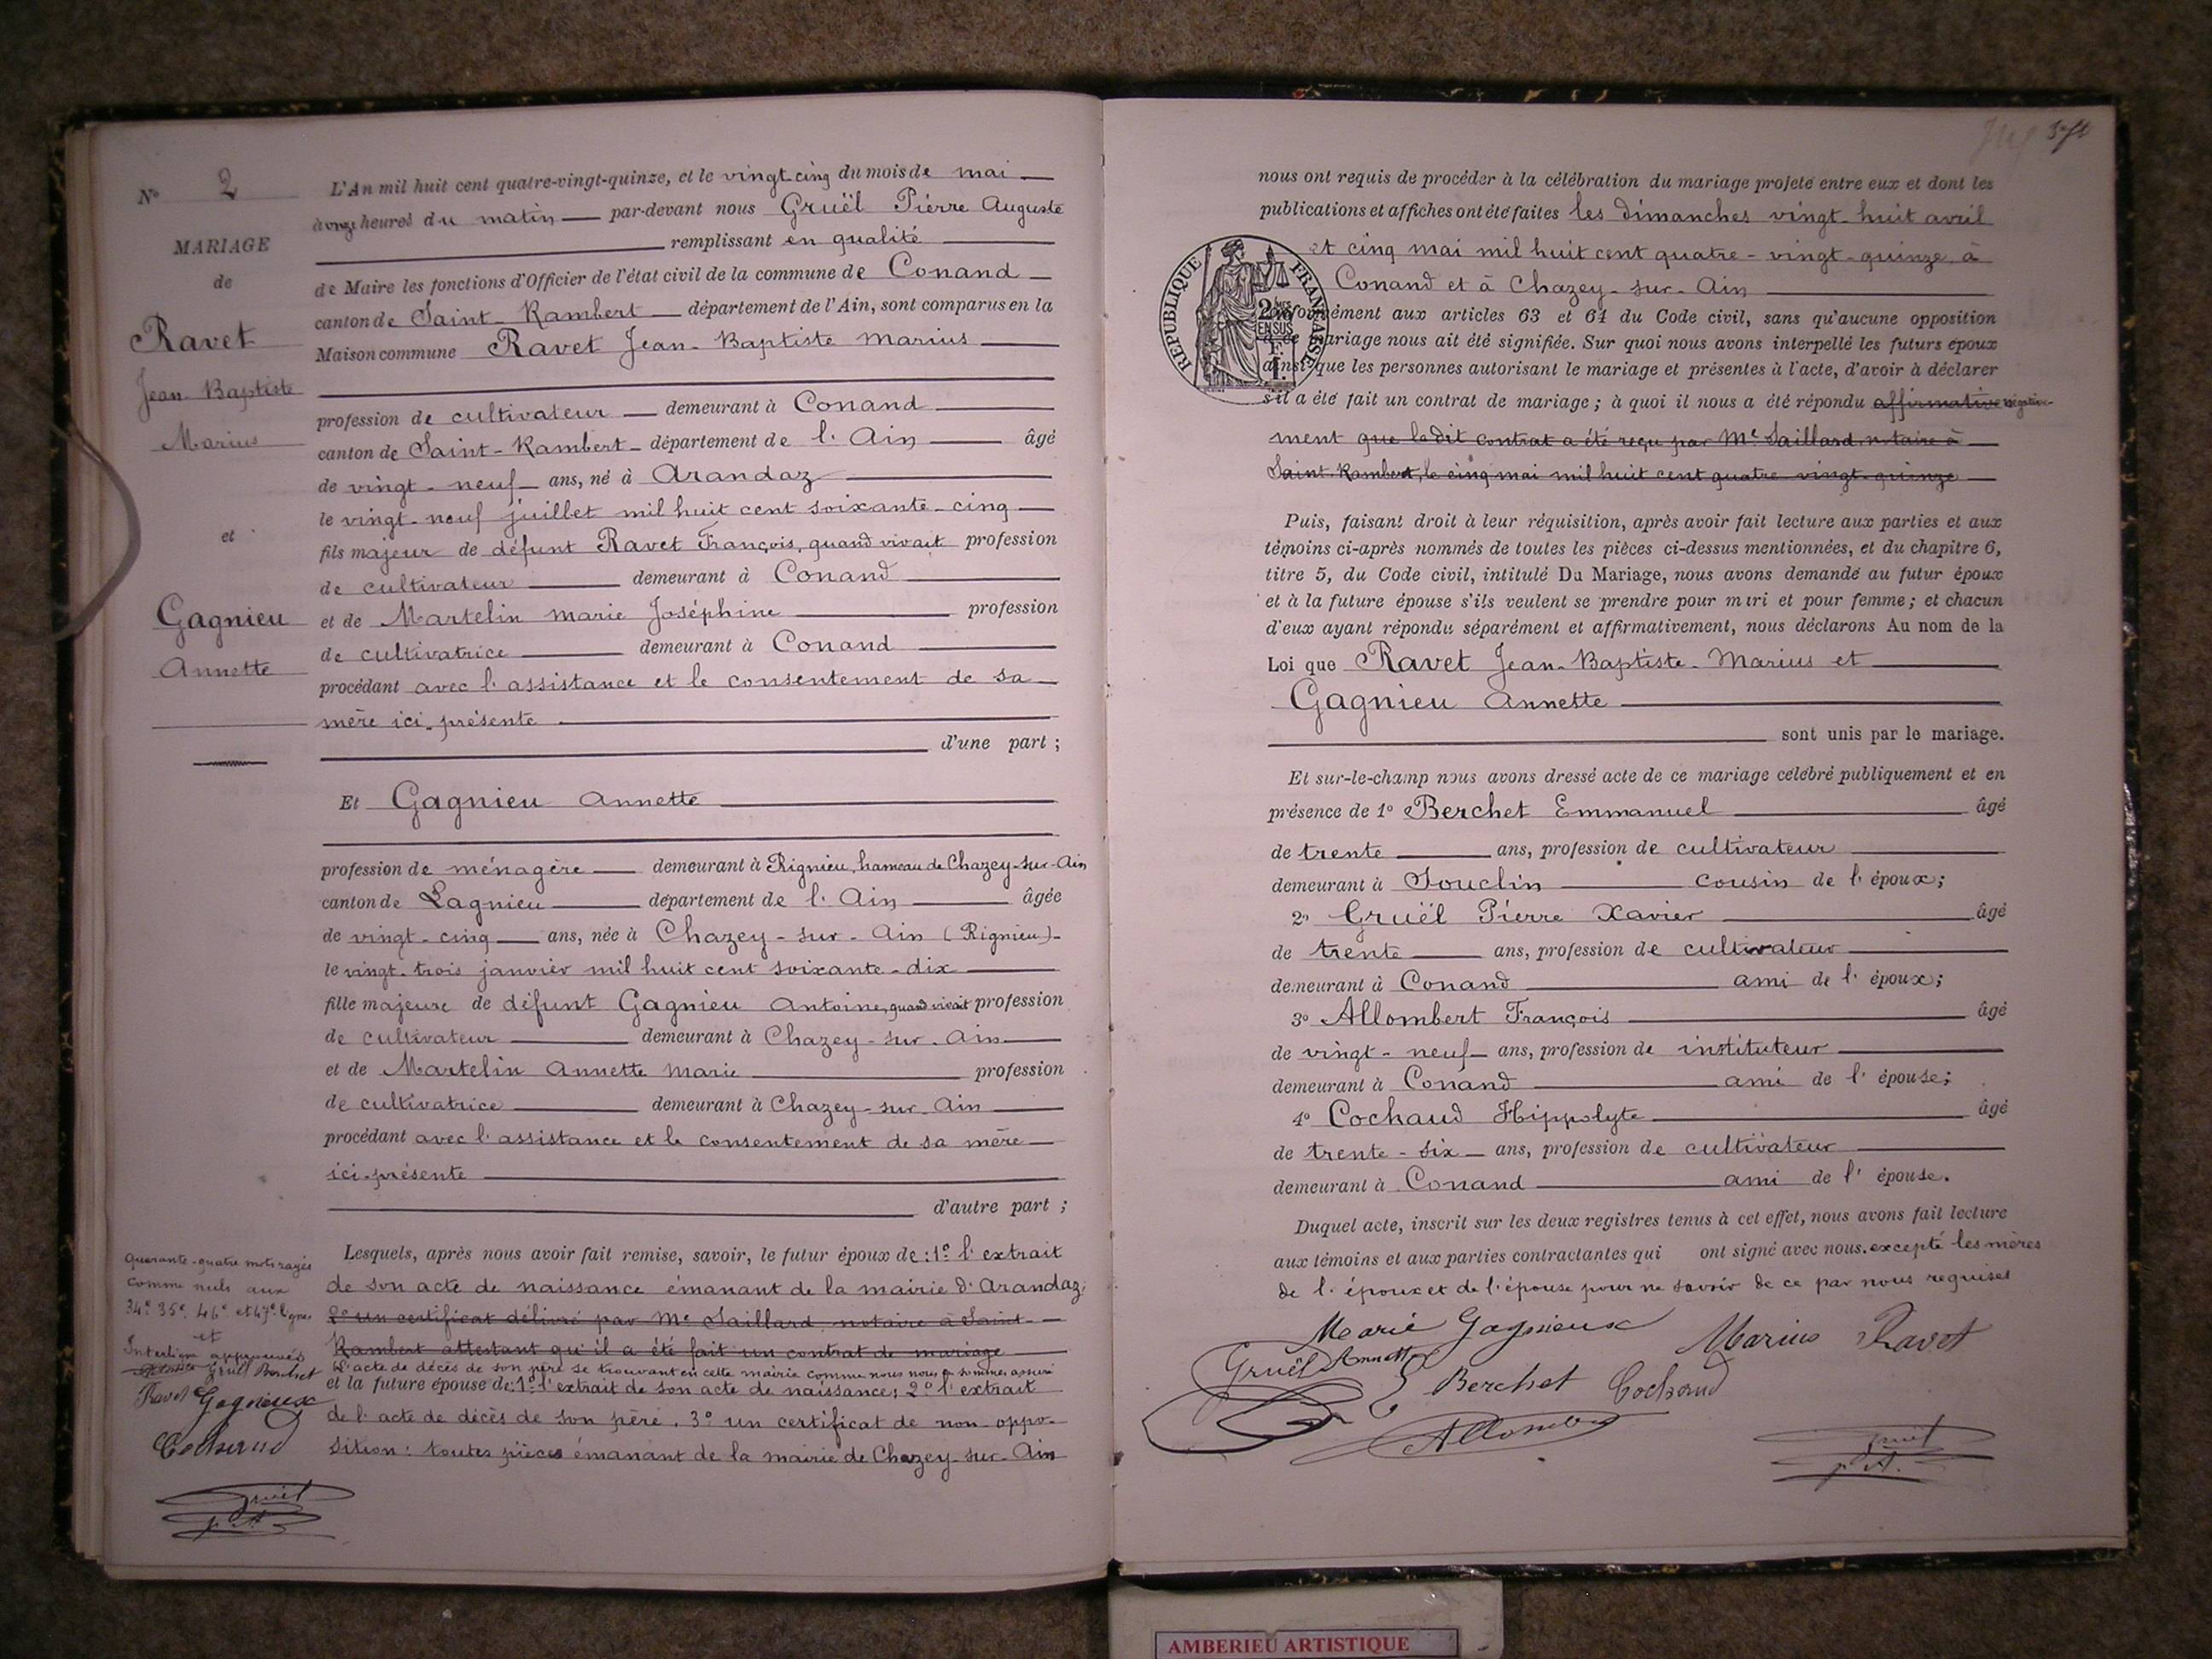 N° 2
MARIAGE
de
Ravet
Jean-Baptiste
Marius
et
Gagnieu
Annette
L'An mil huit cent quatre-vingt-quinze, et le vingt-cinq du mois de mai
à onze heures du matin par-devant nous Gruël Pierre Auguste
remplissant en qualité
de Maire les fonctions d'Officier de l'état civil de la commune de Conand
canton de Saint-Rambert département de l'Ain, sont comparus en la
Maison commune Ravet Jean-Baptiste Marius
profession de cultivateur demeurant à Conand
canton de Saint-Rambert département de l'Ain âgé
de vingt-neuf ans, né à Arandaz
le vingt-neuf juillet mil huit cent soixante-cinq
fils majeur de défunt Ravet François, quand vivait profession
de cultivateur demeurant à Conand
et de Martelin Marie Joséphine profession
de cultivatrice demeurant à Conand
procédant avec l'assistance et le consentement de sa
mère ici présente
d'une part ;
Et Gagnieu Annette
profession de ménagère demeurant à Rignieu, hameau de Chazey-sur-Ain
canton de Lagnieu département de l'Ain âgée
de vingt-cinq ans, née à Chazey-sur-Ain (Rignieu)
le vingt-trois janvier mil huit cent soixante-dix
fille majeure de défunt Gagnieu Antoine, quand vivait profession
de cultivateur demeurant à Chazey-sur-Ain
et de Martelin Annette Marie profession
de cultivatrice demeurant à Chazey-sur-Ain
procédant avec l'assistance et le consentement de sa mère
ici-présente
d'autre part ;
Lesquels, après nous avoir fait remise, savoir, le futur époux de : 1° l'extrait
de son acte de naissance émanant de la mairie d'Arandaz;
2° un certificat délivré par Me Saillard, notaire à Saint-
Rambert attestant qu'il a été fait un contrat de mariage
L'acte de décès de son père se trouvant en cette mairie comme nous nous en sommes assuré
et la future épouse de : 1° l'extrait de son acte de naissance; 2° l'extrait
de l'acte de décès de son père. 3° un certificat de non-oppo-
sition : toutes pièces émanant de la mairie de Chazey-sur-Ain
Quarante-quatre mots rayés
comme nuls aux
34e 35e 46e et 47e lignes
et
Interligne approuvés
Gruël Berchet
Ravet Gagnieux
Cochaud
Gruël
p. A.
nous ont requis de procéder à la célébration du mariage projeté entre eux et dont les
publications et affiches ont été faites les dimanches vingt-huit avril
et cinq mai mil huit cent quatre-vingt-quinze à
Conand et à Chazey-sur-Ain
RÉPUBLIQUE FRANÇAISE
2
EN SUS
F.
1.
conformément aux articles 63 et 64 du Code civil, sans qu'aucune opposition
à ce mariage nous ait été signifiée. Sur quoi nous avons interpellé les futurs époux
ainsi que les personnes autorisant le mariage et présentes à l'acte, d'avoir à déclarer
s'il a été fait un contrat de mariage ; à quoi il nous a été répondu affirmative négative-
ment que ledit contrat a été reçu par Me Saillard notaire à
Saint-Rambert, le cinq mai mil huit cent quatre-vingt-quinze
Puis, faisant droit à leur réquisition, après avoir fait lecture aux parties et aux
témoins ci-après nommés de toutes les pièces ci-dessus mentionnées, et du chapitre 6,
titre 5, du Code civil, intitulé Du Mariage, nous avons demandé au futur époux
et à la future épouse s'ils veulent se prendre pour mari et pour femme ; et chacun
d'eux ayant répondu séparément et affirmativement, nous déclarons Au nom de la
Loi que Ravet Jean-Baptiste-Marius et
Gagnieu Annette
sont unis par le mariage.
Et sur-le-champ nous avons dressé acte de ce mariage célébré publiquement et en
présence de 1° Berchet Emmanuel âgé
de trente ans, profession de cultivateur
demeurant à Souclin cousin de l'époux;
2° Gruël Pierre Xavier âgé
de trente ans, profession de cultivateur
demeurant à Conand ami de l'époux;
3° Allombert François âgé
de vingt-neuf ans, profession de instituteur
demeurant à Conand ami de l'épouse;
4° Cochaud Hippolyte âgé
de trente-six ans, profession de cultivateur
demeurant à Conand ami de l'épouse.
Duquel acte, inscrit sur les deux registres tenus à cet effet, nous avons fait lecture
aux témoins et aux parties contractantes qui ont signé avec nous. excepté les mères
de l'époux et de l'épouse pour ne savoir de ce par nous requises
Marie Gagnieux Marius Ravet
Gruël Annette
Berchet Cochaud
Allombert
Gruël
p. A.
AMBERIEU ARTISTIQUE